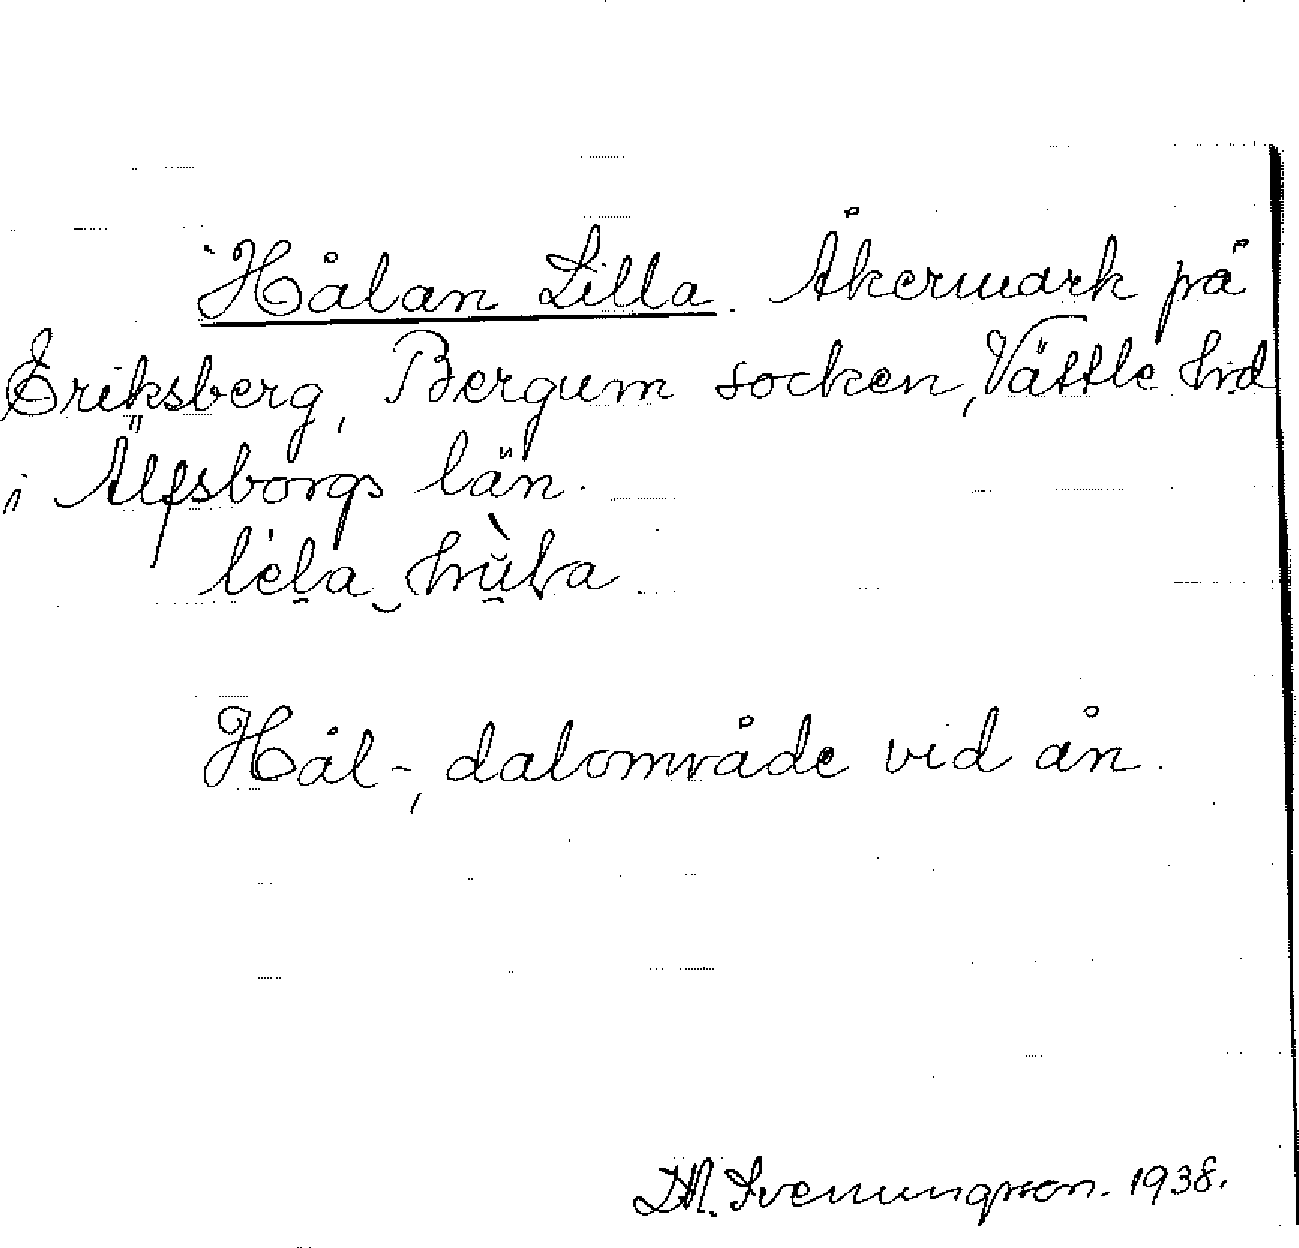 Hålan Lilla. Åkermark på
Eriksberg, Bergum socken, Vättle hrd
i Älfsborgs län.
Hål-, dalområde vid ån.
D.M. Svenungsson. 1938.